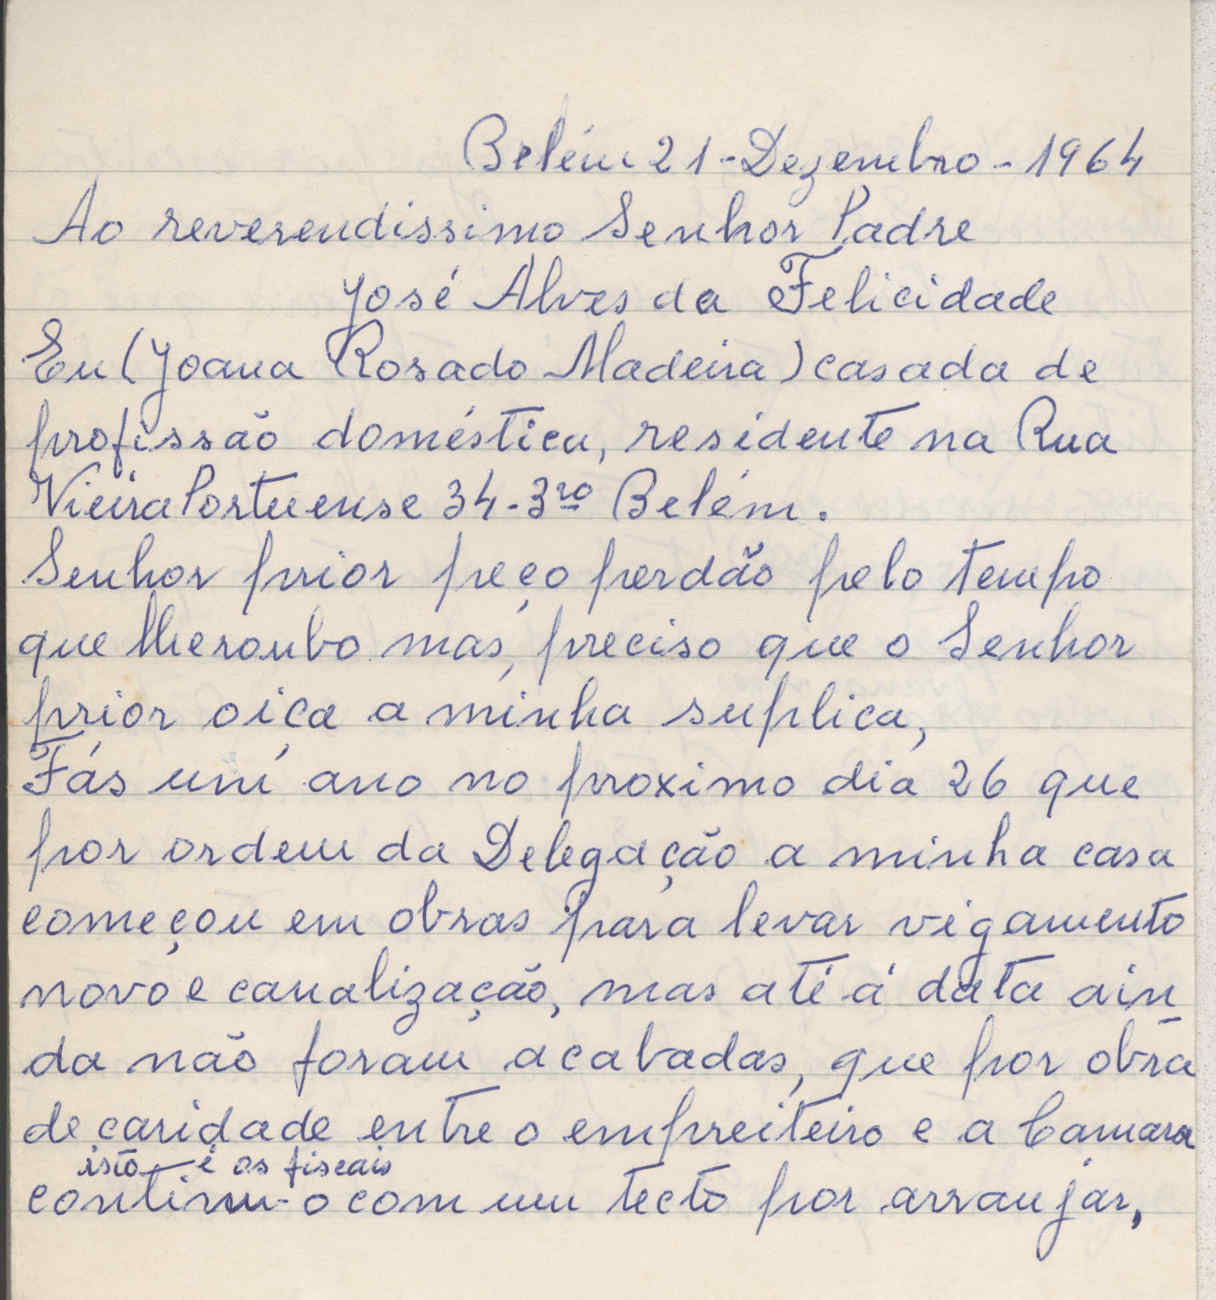 Belém 21-Dezembro-1964
Ao reverendissimo Senhor Padre
José Alves da Felicidade
Eu (Joana Rosado Madeira) casada de
profissão doméstica, residente na Rua
Vieira Portuense 34-3ro Belém.
Senhor prior peço perdão pelo tempo
que lhe roubo mas, preciso que o Senhor
prior oiça a minha suplica,
Fás um ano no proximo dia 26 que
por ordem da Delegação a minha casa
começou em obras para levar vigamento
novo e canalização, mas até á data ain
da não foram acabadas, que por obra
de caridade entre o empreiteiro e a Camara
isto é os fiscais
continu-o com um tecto por arranjar,